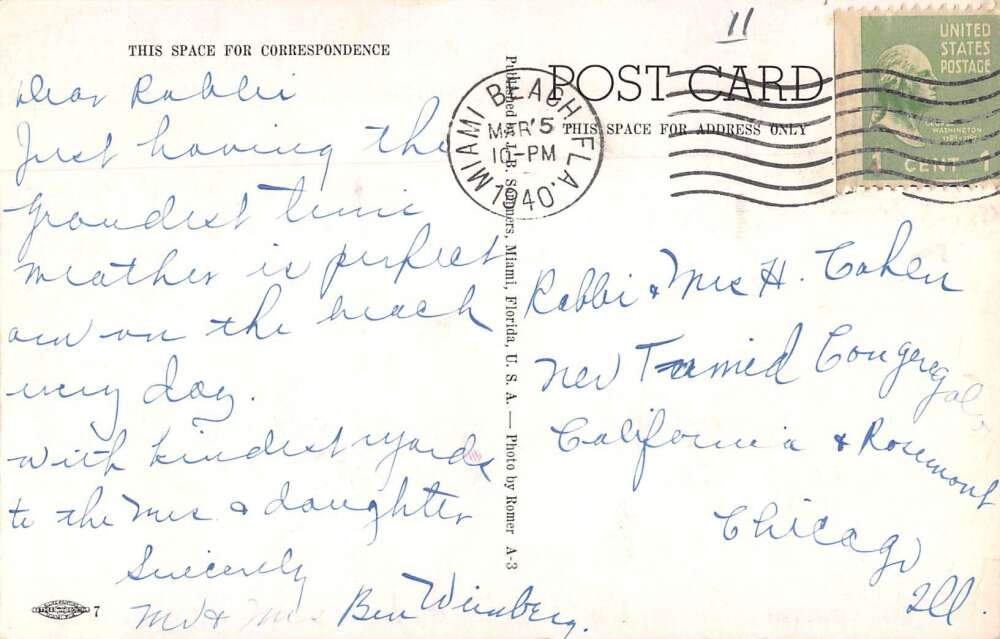 THIS SPACE FOR CORRESPONDENCE
Dear Rabbi
Just having the
grandest time
weather is perfect
am on the beach
every day.
with kindest regards
to the Mrs & daughter
Sincerely
Mr & Mrs Ben Weinberg.
7
Published by J. B. Summers, Miami, Florida, U. S. A. — Photo by Romer A-3
11
POST CARD
THIS SPACE FOR ADDRESS ONLY
MIAMI BEACH, FLA.
MAR 5
10-PM
1940
UNITED
STATES
POSTAGE
WASHINGTON
1 CENT 1
Rabbi & Mrs H. Cohen
Ner Tamid Congrega
California & Rosemont
Chicago
Ill.